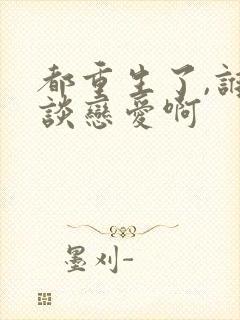 都重生了,誰
談戀愛啊
墨刈-